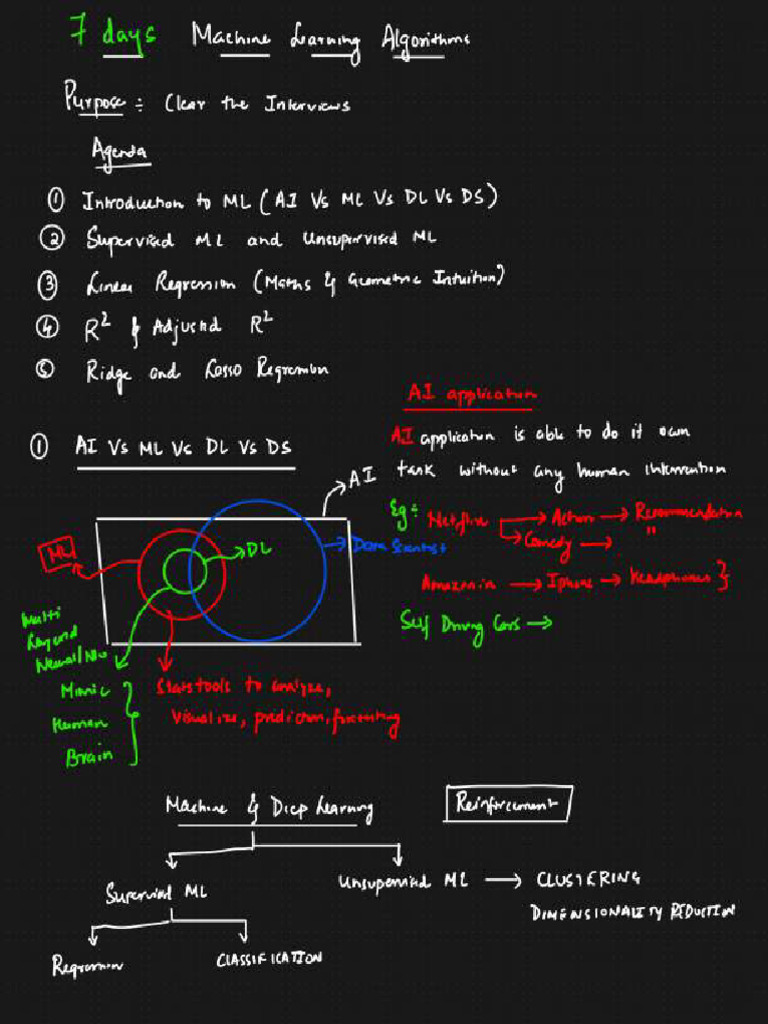 7 days Machine Learning Algorithms
Purpose ÷ Clear the Interviews
Agenda
① Introduction to ML (AI Vs ML Vs DL Vs DS)
② Supervised ML and Unsupervised ML
③ Linear Regression (Maths & Geometric Intuition)
④ R² & Adjusted R²
⑤ Ridge and Lasso Regression
AI application
① AI Vs ML Vs DL Vs DS
AI application is able to do it own
task without any human intervention
AI
Eg ÷ Netflix → Action → Recommendation
→ Comedy → "
ML
DL
→ Data Scientist
Amazon.in → Iphone → Headphones }
Self Driving Cars →
Multi
Layered
Neural N/w
Mimic
Human
Brain
Stats tools to analyze,
Visualize, prediction, forecasting
Machine & Deep Learning
Reinforcement
Supervised ML
Unsupervised ML → CLUSTERING
DIMENSIONALITY REDUCTION
Regression
CLASSIFICATION